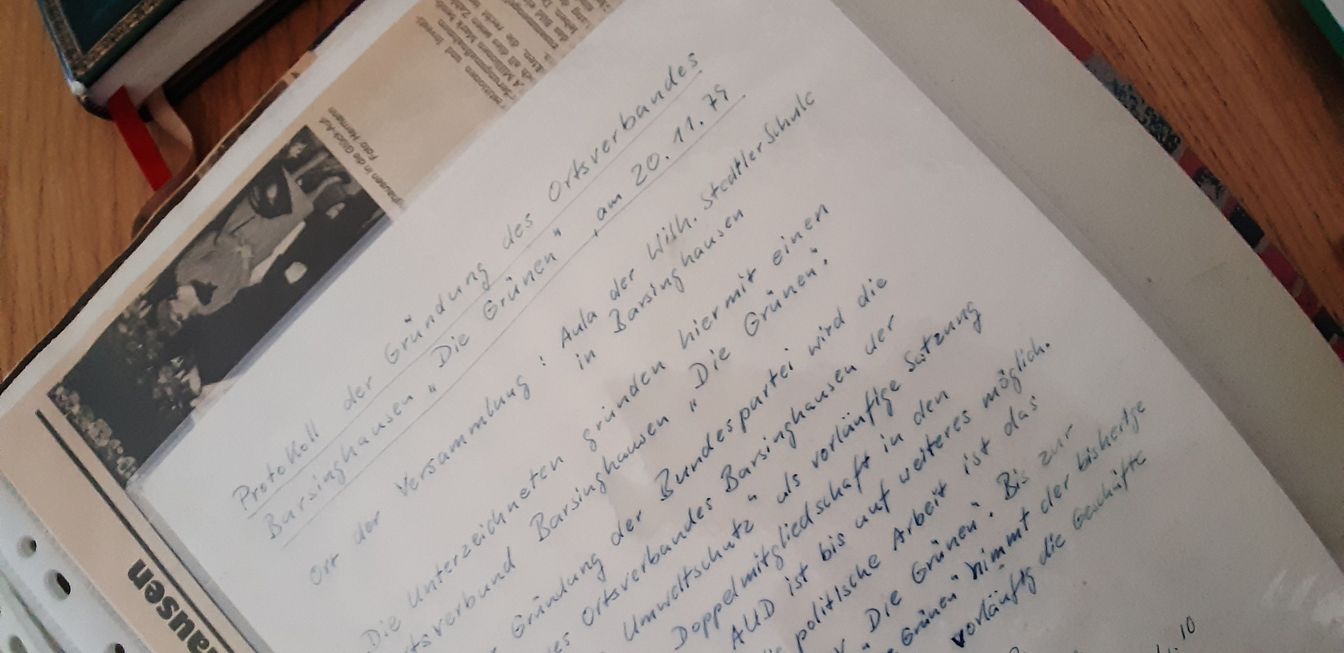 Protokoll der Gründung des Ortsverbandes
Barsinghausen "Die Grünen", am 20.11.79
Ort der Versammlung: Aula der Wilh. Stedtler Schule
in Barsinghausen
Die Unterzeichneten gründen hiermit einen
Ortsverbund Barsinghausen "Die Grünen".
Gründung der Bundespartei wird die
des Ortsverbandes Barsinghausen der
Umweltschutz" als vorläufige Satzung
Doppelmitgliedschaft in den
AUD ist bis auf weiteres möglich.
politische Arbeit ist das
"Die Grünen". Bis zur
Grünen" nimmt der bisherige
vorläufig die Geschäfte
10
hausen in die Glück-Auf-
Foto: Hermann
ausen